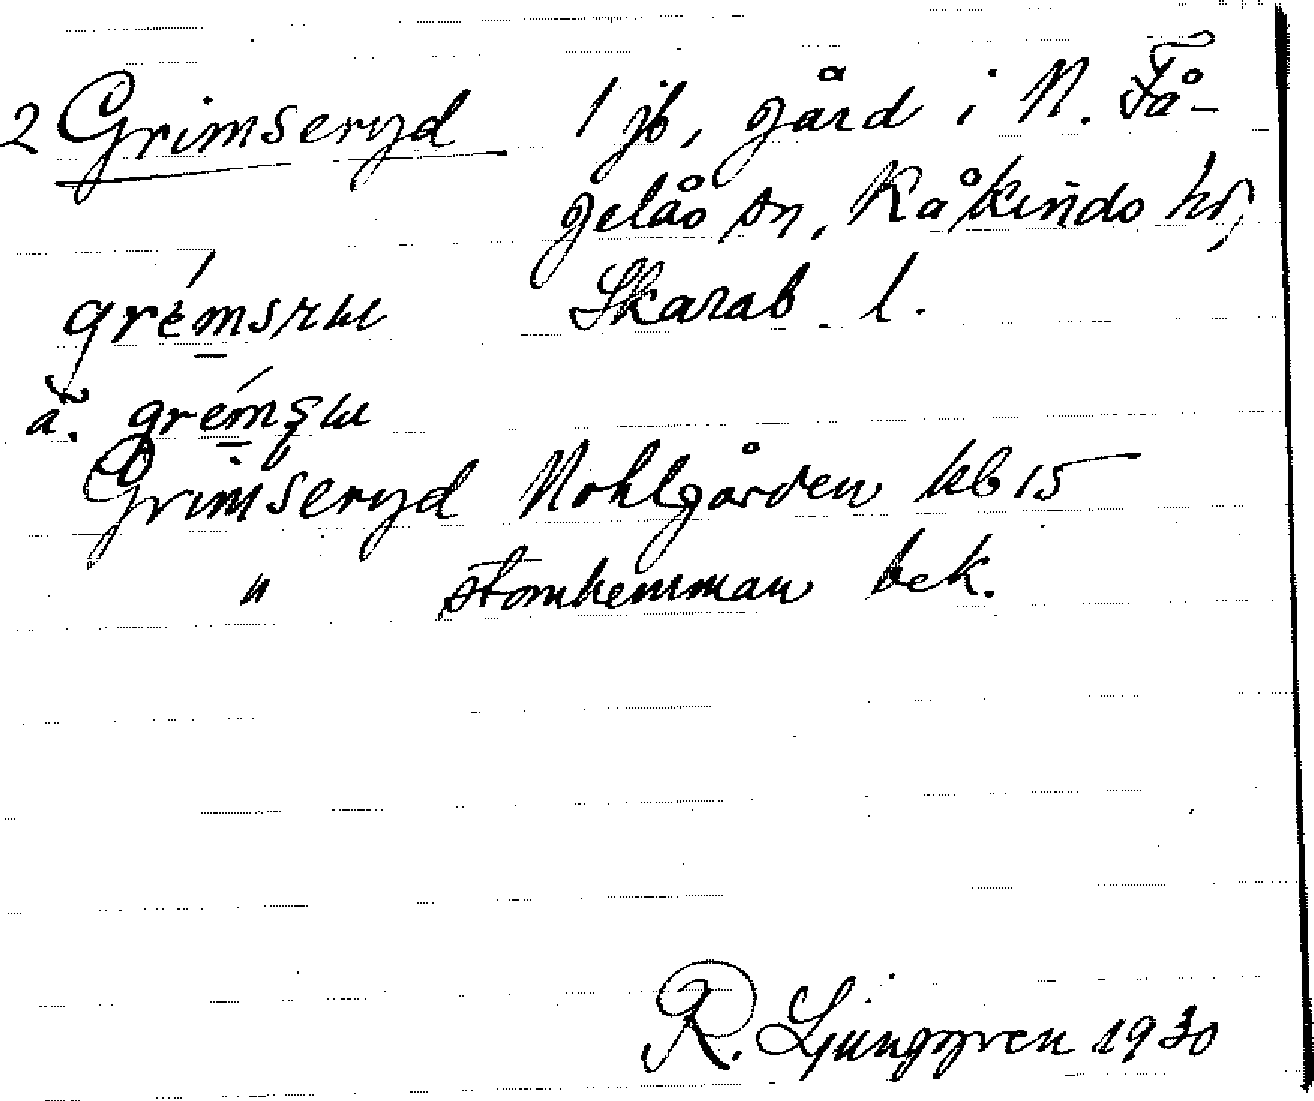 2 Grimseryd 1 jb, gård i N. Få-
gelås sn, Kåkinds hd,
Skarab. l.
Grimseryd Nohlgården kb 15
" stomhemman bek.
R. Ljunggren 1930